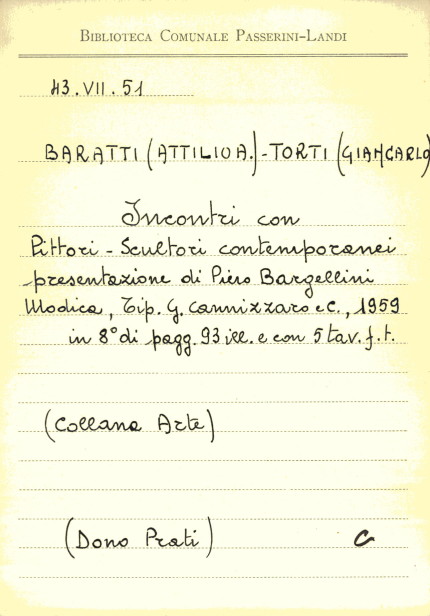 BIBLIOTECA COMUNALE PASSERINI-LANDI
43.VII.51
BARATTI (ATTILIO A.) - TORTI (GIANCARLO)
Incontri con
Pittori - Scultori contemporanei
presentazione di Piero Bargellini
Modica, Tip. G. Cannizzaro e C., 1959
in 8° di pagg. 93 ill. e con 5 tav. f.t.
(Collana Arte)
(Dono Prati) C